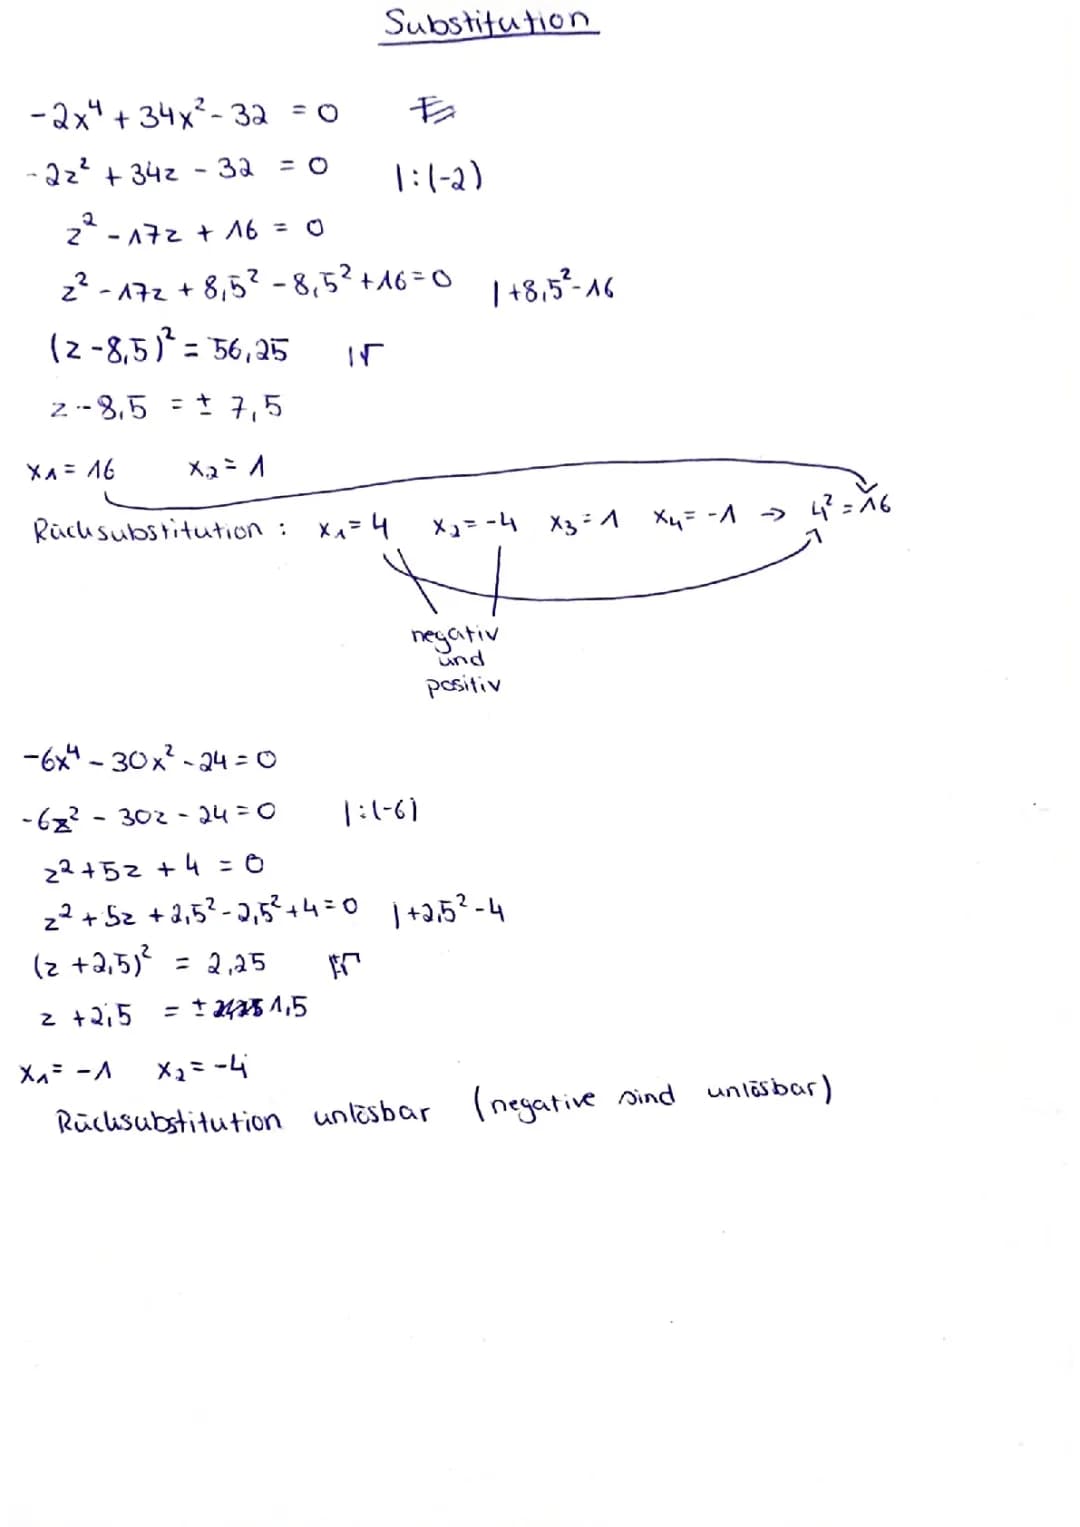 Substitution
-2x⁴ + 34x² - 32 = 0
-2z² + 34z - 32 = 0 |:(-2)
z² - 17z + 16 = 0
z² - 17z + 8,5² - 8,5² + 16 = 0 |+8,5²-16
(z - 8,5)² = 56,25 |√
z - 8,5 = ± 7,5
x₁ = 16 x₂ = 1
Rücksubstitution : x₁ = 4 x₂ = -4 x₃ = 1 x₄ = -1 → 4² = 16
negativ
und
positiv
-6x⁴ - 30x² - 24 = 0
-6z² - 30z - 24 = 0 |:(-6)
z² + 5z + 4 = 0
z² + 5z + 2,5² - 2,5² + 4 = 0 |+2,5² - 4
(z + 2,5)² = 2,25 |√
z + 2,5 = ± 1,5
x₁ = -1 x₂ = -4
Rücksubstitution unlösbar (negative sind unlösbar)